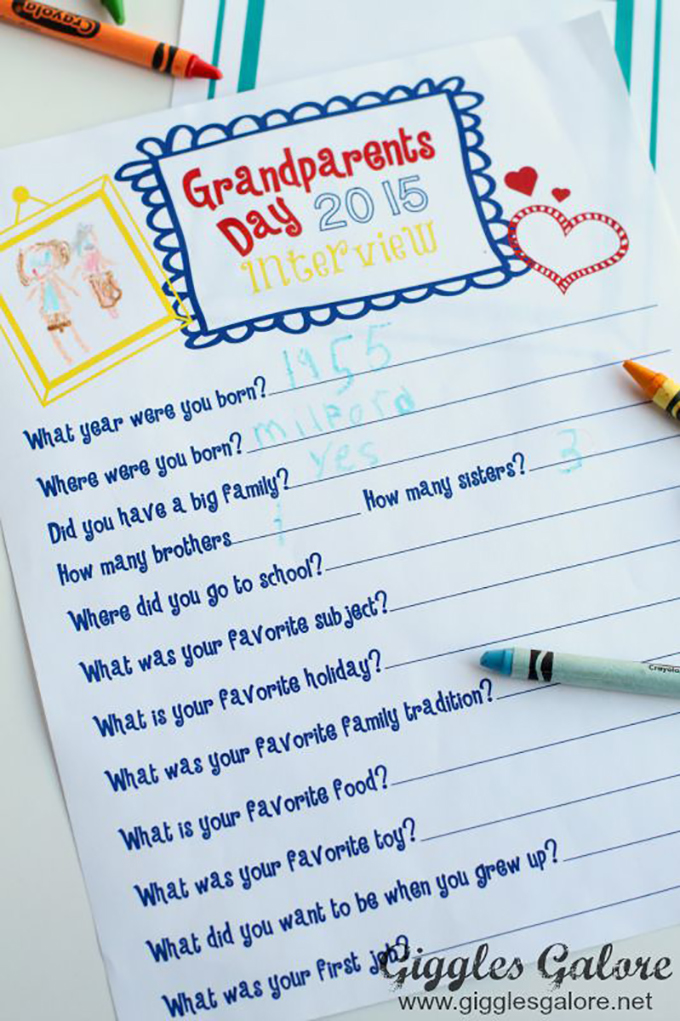 Crayola
Grandparents
Day 2015
interview
What year were you born? 1955
Where were you born? milford
Did you have a big family? yes
How many brothers 1 How many sisters? 3
Where did you go to school?
What was your favorite subject?
What is your favorite holiday?
What was your favorite family tradition?
Crayola
What is your favorite food?
What was your favorite toy?
What did you want to be when you grew up?
What was your first job?
Giggles Galore
www.gigglesgalore.net